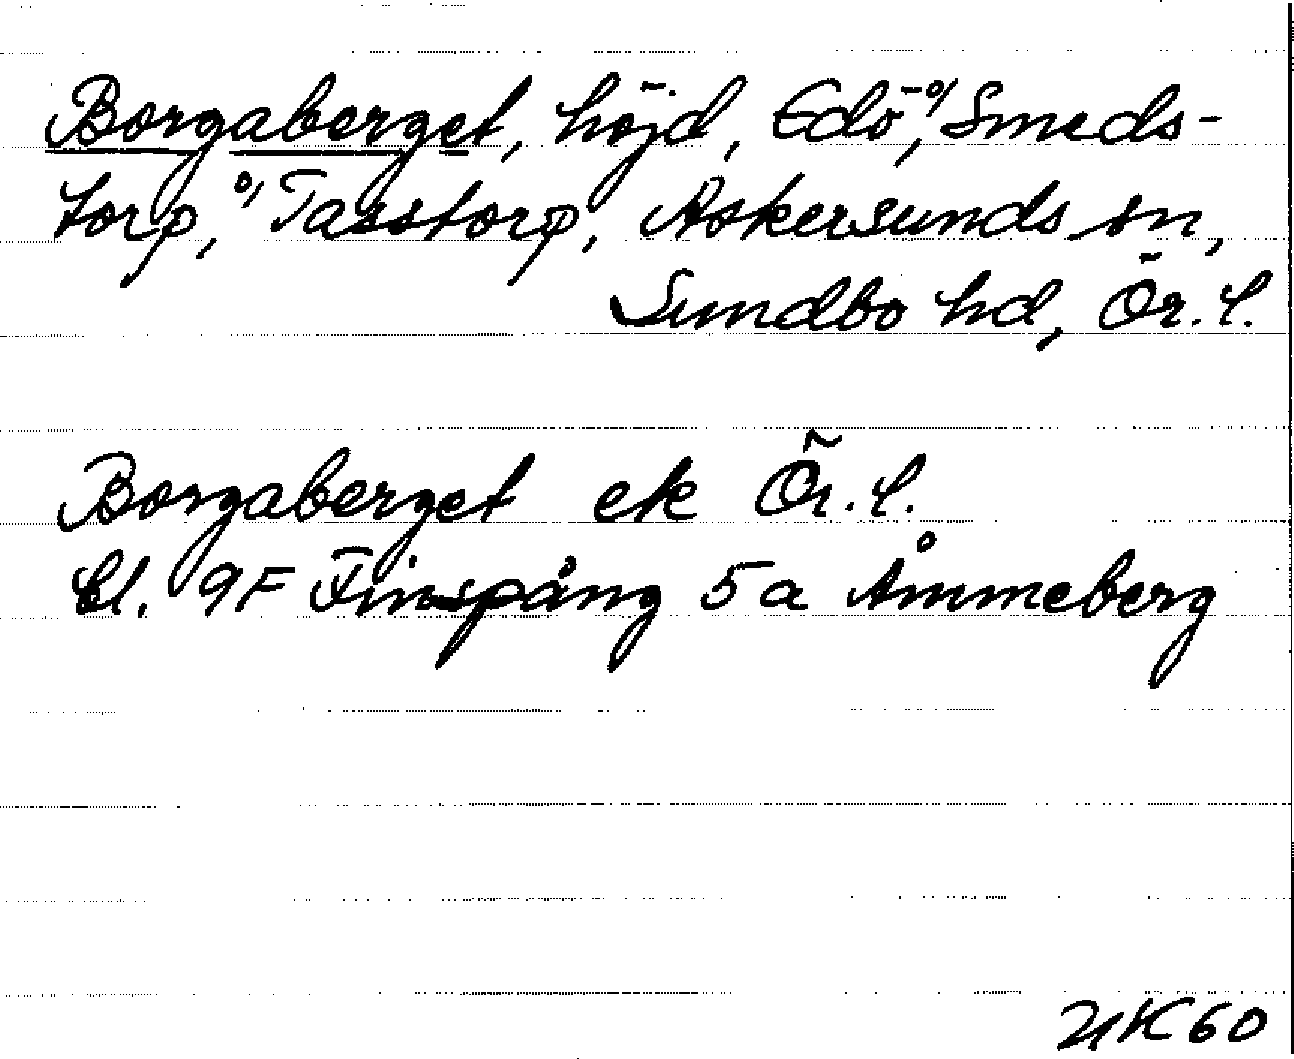 Borgaberget, höjd, Edö, %Smeds-
torp, %Tasstorp, Askersunds sn,
Sundbo hd, Ör. l.
Borgaberget ek Ör. l.
bl. 9F Finspång 5a Åmmeberg
UK60